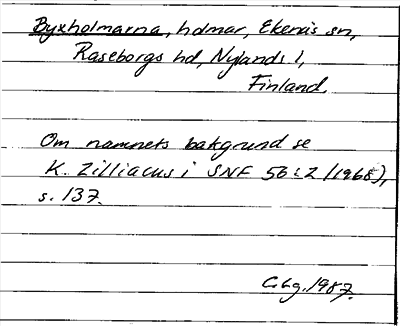 Byxholmarna, holmar, Ekenäs sn,
Raseborgs hd, Nylands l,
Finland.
Om namnets bakgrund se
K. Zilliacus i SNF 56:2 (1968),
s. 137.
C.Lg. 1987.